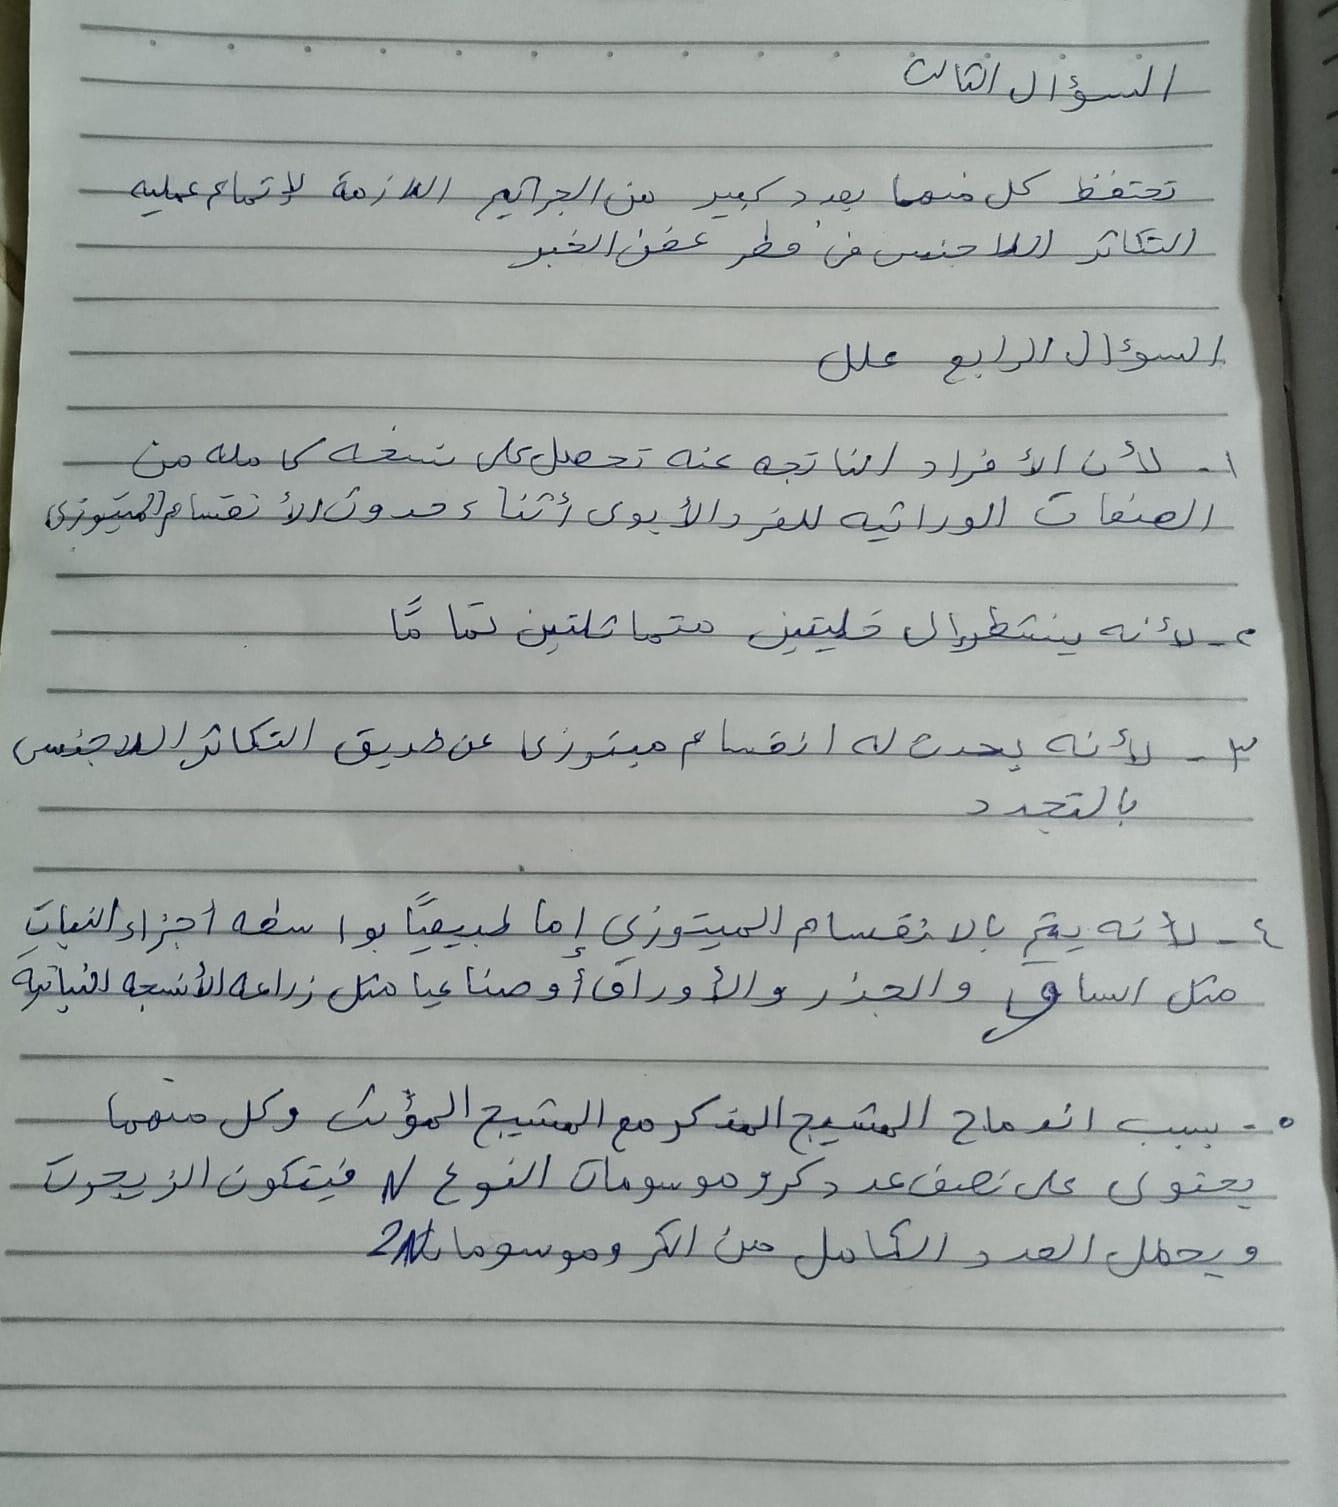 السؤال الثالث
تحتفظ كل منهما بعدد كبير من الجراثيم اللازمة لإتمام عمليه
التكاثر اللاجنسى فى فطر عفن الخبز
السؤال الرابع علل
١- لأن الأفراد الناتجه عنه تحصل على نسخه كامله من
الصفات الوراثيه للفرد الأبوى أثناء حدوث الأنقسام الميتوزى
٢- لأنه ينشطر الى خليتين متماثلتين تمامًا
٣- لأنه يحدث له انقسام ميتوزى عن طريق التكاثر اللاجنسى
بالتجدد
٤- لأنه يتم بالانقسام الميتوزي إما طبيعيًا بواسطه أجزاء النبات
مثل الساق والجذر والأوراق أو صناعيا مثل زراعه الأنسجه النباتية
٥- بسبب اندماج المشيج المذكر مع المشيج المؤنث وكل منهما
يحتوى على نصف عدد كروموسومات النوع N فيتكون الزيجوت
ويحمل العدد الكامل من الكروموسومات 2N